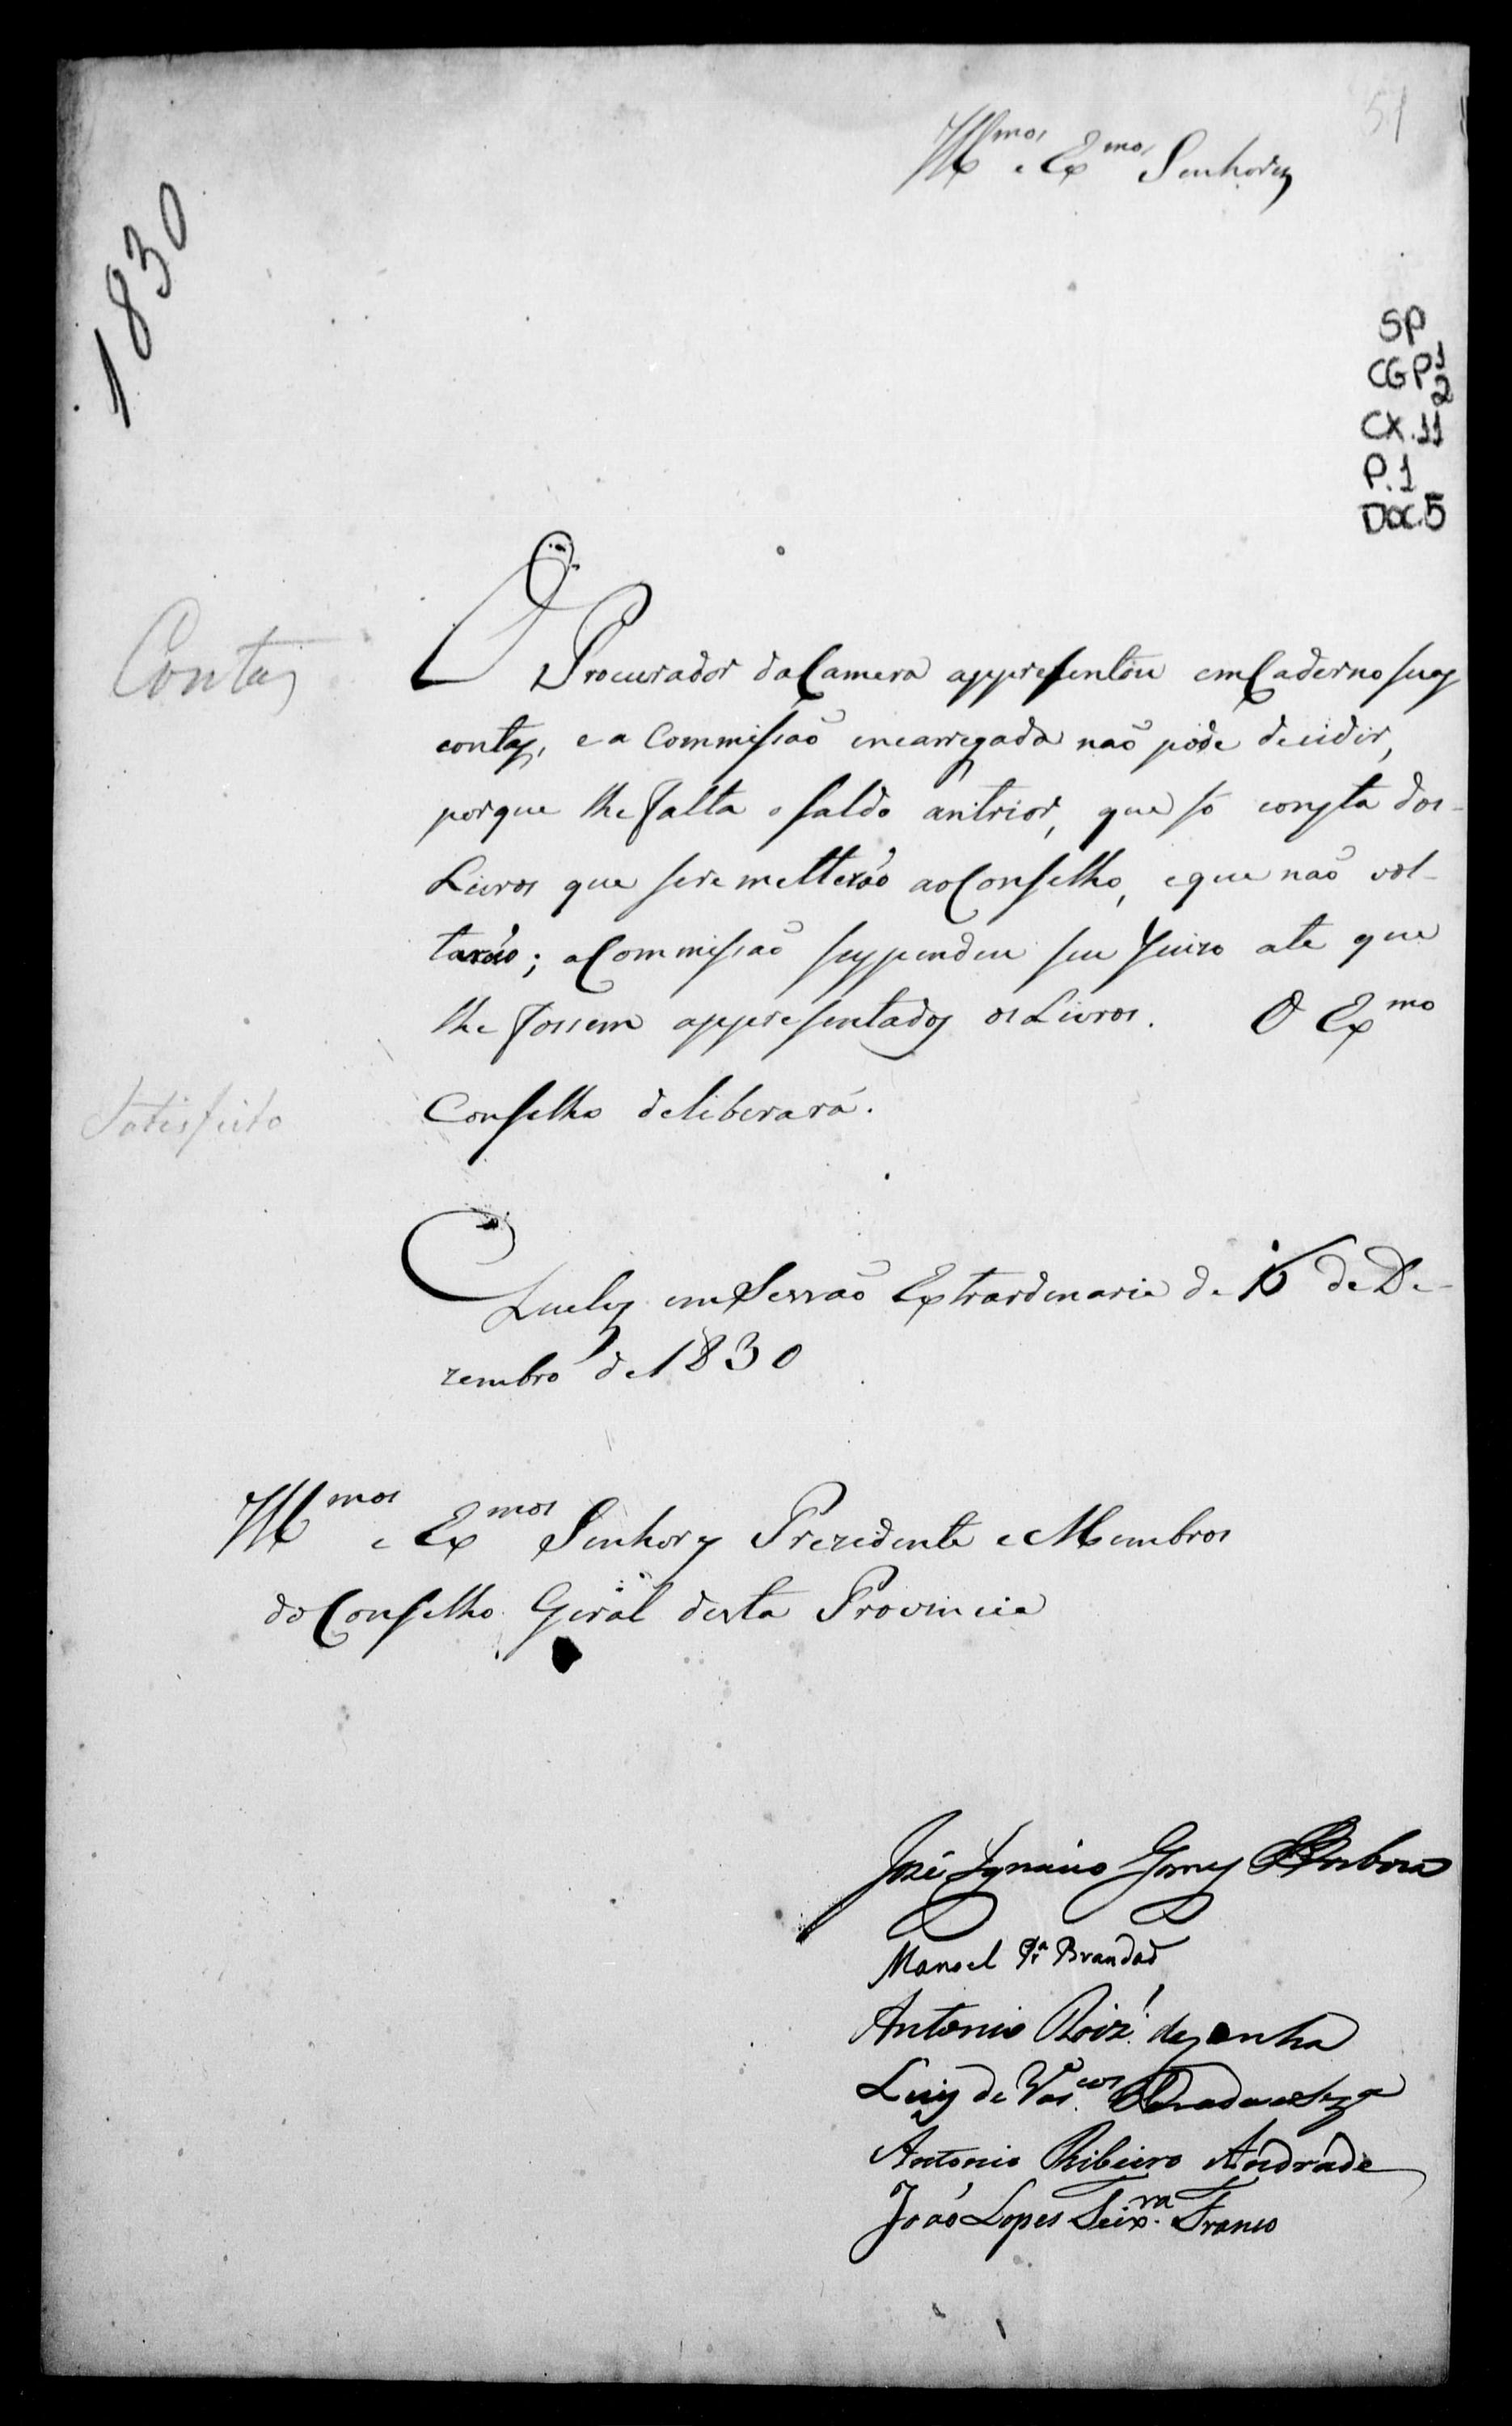 51
Ill.mos e Ex.mos Senhores
1830
SP
CGP1
2
CX.11
P.1
DOC.5
Contas
O Procurador da Camera appresentou em Caderno suas
contas, e a Commissaõ encarregada naõ pôde decidir,
porque lhe falta o saldo anterior, que só consta dos
Livros que se remetteraõ ao Conselho, e que naõ vol-
taraõ; a Commissaõ suspendeu seu juizo ate que
lhe fossem appresentados os Livros. O Ex.mo
Conselho deliberará.
Satisfeito
Queluz em Sessaõ Extrardinaria de de De-
zembro de 1830
Ill.mos e Ex.mos Senhores Prezidente e Membros
do Conselho Geral desta Provincia
José Ignacio Gomes Barbosa
Manoel Pr.a Brandaõ
Antonio Roiz
Luiz de Vas.cos
Antonio Ribeiro Andrade
João Lopes Teix.ra Franco